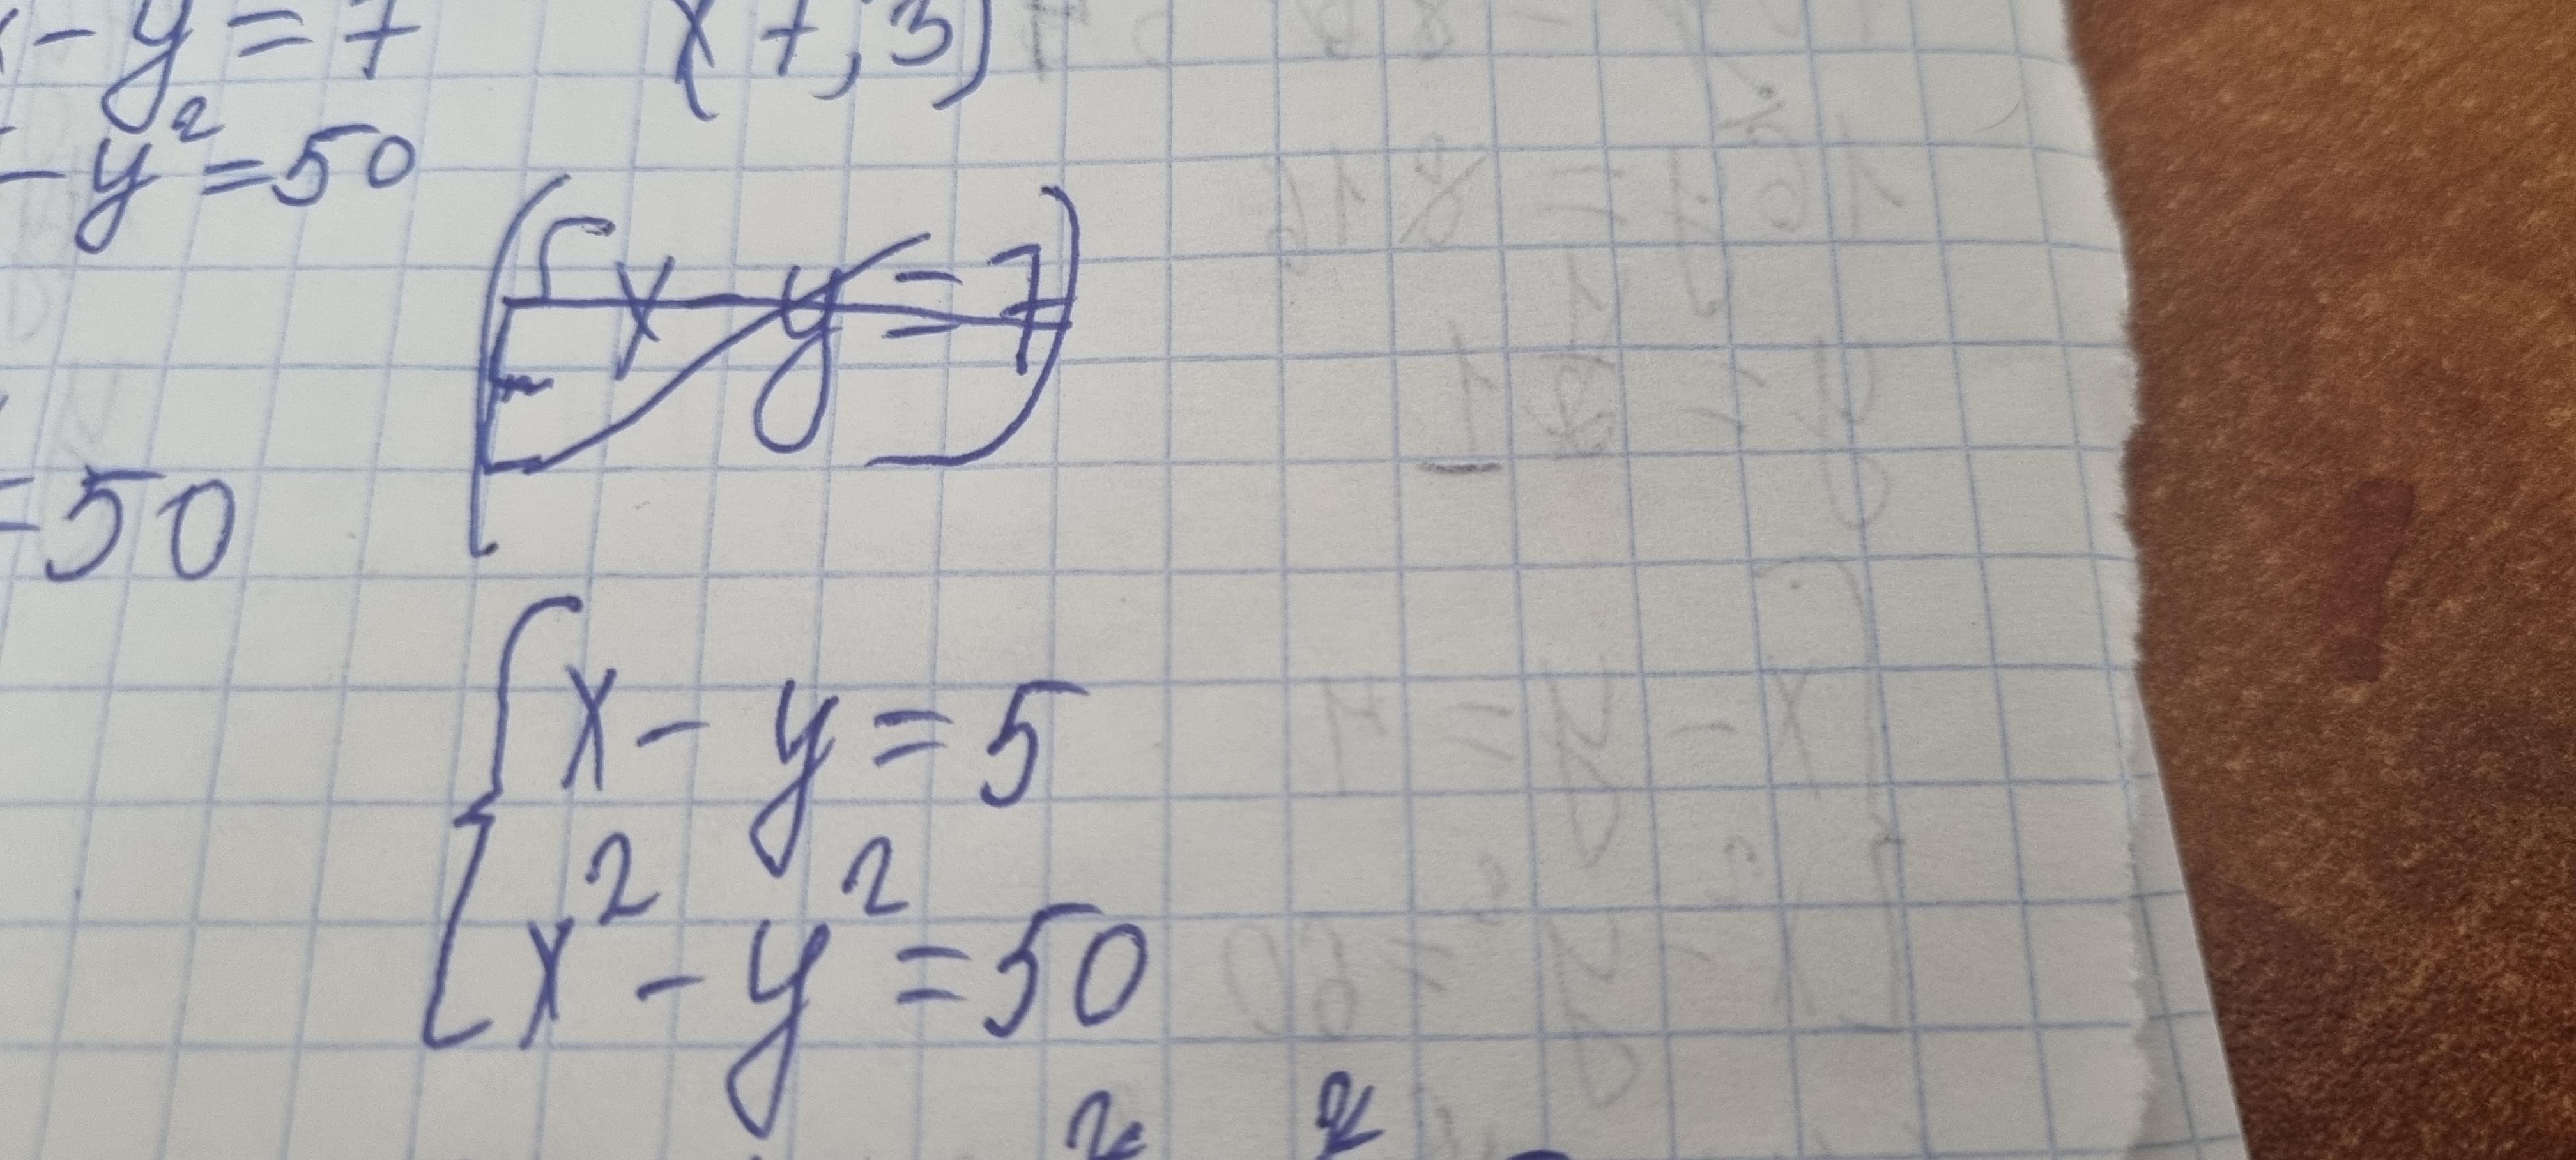 - y = 7 (7; 3)
- y² = 50
x y = 7
= 50
x - y = 5
x² - y² = 50